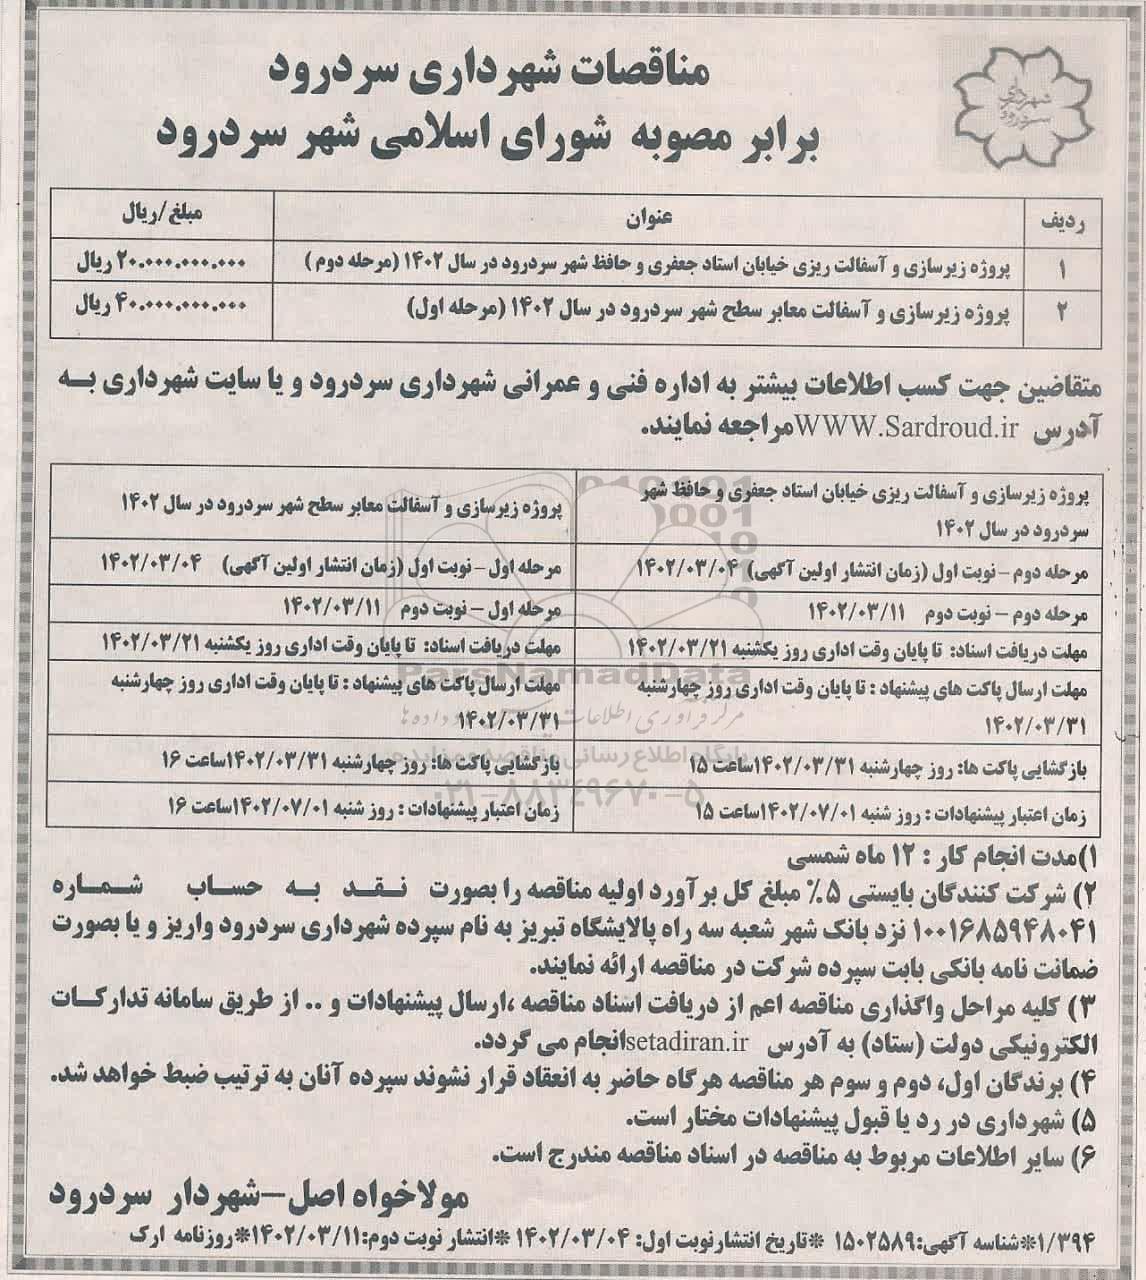 شهرداری
سردرود
مناقصات شهرداری سردرود
برابر مصوبه شورای اسلامی شهر سردرود
ردیف عنوان مبلغ/ریال
۱ پروژه زیرسازی و آسفالت ریزی خیابان استاد جعفری و حافظ شهر سردرود در سال ۱۴۰۲ (مرحله دوم ) ۲۰.۰۰۰.۰۰۰.۰۰۰ ریال
۲ پروژه زیرسازی و آسفالت معابر سطح شهر سردرود در سال ۱۴۰۲ (مرحله اول) ۴۰.۰۰۰.۰۰۰.۰۰۰ ریال
متقاضین جهت کسب اطلاعات بیشتر به اداره فنی و عمرانی شهرداری سردرود و یا سایت شهرداری بـه
آدرس WWW.Sardroud.ir مراجعه نمایند.
پروژه زیرسازی و آسفالت ریزی خیابان استاد جعفری و حافظ شهر
سردرود در سال ۱۴۰۲
پروژه زیرسازی و آسفالت معابر سطح شهر سردرود در سال ۱۴۰۲
مرحله دوم – نوبت اول (زمان انتشار اولین آگهی) ۱۴۰۲/۰۳/۰۴
مرحله اول – نوبت اول (زمان انتشار اولین آگهی) ۱۴۰۲/۰۳/۰۴
مرحله دوم – نوبت دوم ۱۴۰۲/۰۳/۱۱
مرحله اول – نوبت دوم ۱۴۰۲/۰۳/۱۱
مهلت دریافت اسناد: تا پایان وقت اداری روز یکشنبه ۱۴۰۲/۰۳/۲۱
مهلت دریافت اسناد: تا پایان وقت اداری روز یکشنبه ۱۴۰۲/۰۳/۲۱
مهلت ارسال پاکت های پیشنهاد : تا پایان وقت اداری روز چهارشنبه
۱۴۰۲/۰۳/۳۱
مهلت ارسال پاکت های پیشنهاد : تا پایان وقت اداری روز چهارشنبه
۱۴۰۲/۰۳/۳۱
بازگشایی پاکت ها: روز چهارشنبه ۱۴۰۲/۰۳/۳۱ساعت ۱۵
بازگشایی پاکت ها: روز چهارشنبه ۱۴۰۲/۰۳/۳۱ساعت ۱۶
زمان اعتبار پیشنهادات : روز شنبه ۱۴۰۲/۰۷/۰۱ساعت ۱۵
زمان اعتبار پیشنهادات : روز شنبه ۱۴۰۲/۰۷/۰۱ساعت ۱۶
ParsNamadData
مرکز فرآوری اطلاعات
داده‌ها
پایگاه اطلاع رسانی مناقصه و مزایده
۰۲۱-۸۸۳۴۹۶۷۰-۵
۱)مدت انجام کار : ۱۲ ماه شمسی
۲) شرکت کنندگان بایستی ۵٪ مبلغ کل برآورد اولیه مناقصه را بصورت نقـد به حساب شماره
۱۰۰۱۶۸۵۹۴۸۰۴۱ نزد بانک شهر شعبه سه راه پالایشگاه تبریز به نام سپرده شهرداری سردرود واریز و یا بصورت
ضمانت نامه بانکی بابت سپرده شرکت در مناقصه ارائه نمایند.
۳) کلیه مراحل واگذاری مناقصه اعم از دریافت اسناد مناقصه ،ارسال پیشنهادات و .. از طریق سامانه تدارکـات
الکترونیکی دولت (ستاد) به آدرس setadiran.ir انجام می گردد.
۴) برندگان اول، دوم و سوم هر مناقصه هرگاه حاضر به انعقاد قرار نشوند سپرده آنان به ترتیب ضبط خواهد شد.
۵) شهرداری در رد یا قبول پیشنهادات مختار است.
۶) سایر اطلاعات مربوط به مناقصه در اسناد مناقصه مندرج است.
مولاخواه اصل–شهردار سردرود
۱/۳۹۴*شناسه آگهی:۱۵۰۲۵۸۹ *تاریخ انتشارنوبت اول: ۱۴۰۲/۰۳/۰۴ *انتشار نوبت دوم:۱۴۰۲/۰۳/۱۱*روزنامه ارک